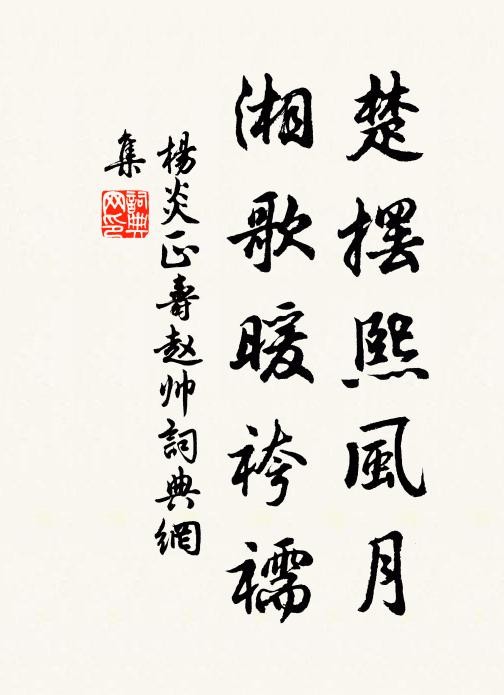 楚摆熙風月
湘歌暖袴襦
楊炎正壽赵帅詞典網
集
詞典
网印